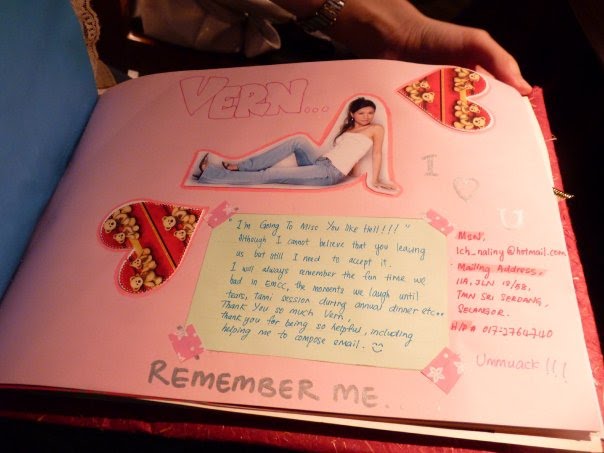 VERN...
I ♡ U
I'm Going To Miss You like Hell!!! "
Although I cannot believe that you leaving
us but still I need to accept it.
I will always remember the fun time we
had in EMCC, the moments we laugh until
tears, Tanni session during annual dinner etc..
Thank You so much Vern,
thank you for being so helpful, including
helping me to compose email.
MSN,
lch_naliny@hotmail.com
Mailing Address,
11A, JLN 18/6E,
TMN SRI SERDANG,
SELANGOR.
H/P # 017-2764740
Ummuack!!!
REMEMBER ME...